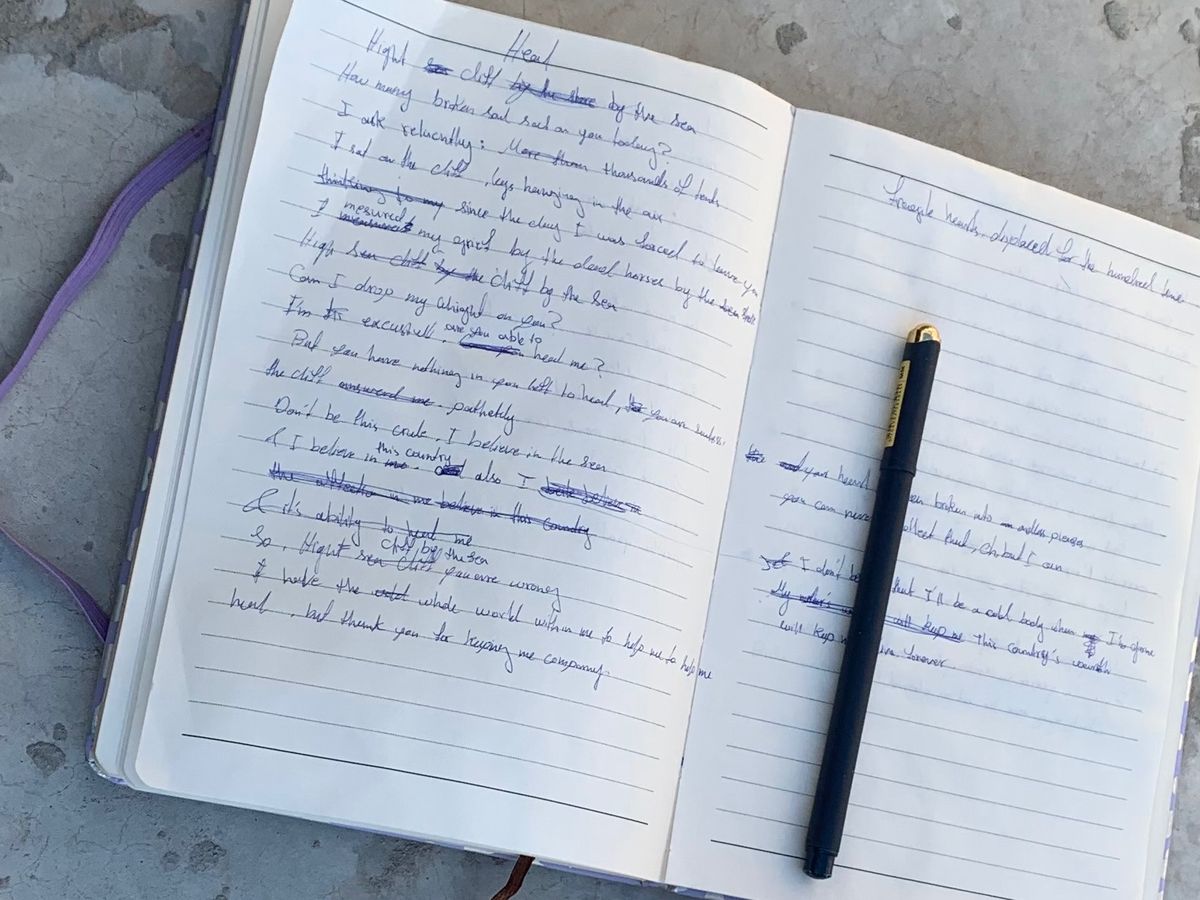 Heal
Hight cliff by the shore by the sea
How many broken soul sad on you today?
I ask reluctently: More than thousands of tends
I sat on the cliff, legs hanging in the air
thinking to my since the day I was forced to leave you
I mesured my grief by the dead horses by the
High sea cliff by the cliff by the sea
Can I drop my whight on you?
I'm excusted, are you able to heal me?
But you have nothing in you left to heal, you are
the cliff answered me pathetely
Don't be this crule, I believe in the sea
& I believe in me. this country also I
the in me believe in this country
& it's ability to heal me
So, Hight sea cliff cliff by the sea you are wrong
I have the whole world within me to help me to help me
heal, but thank you for keeping me company.
Fragile hearts, displaced for the hundred time
your heart broken into endless pieces
you can never that, Oh, but I can
I don't that I'll be a cold body when I be gone
will keep me this country's warmth
will keep forever